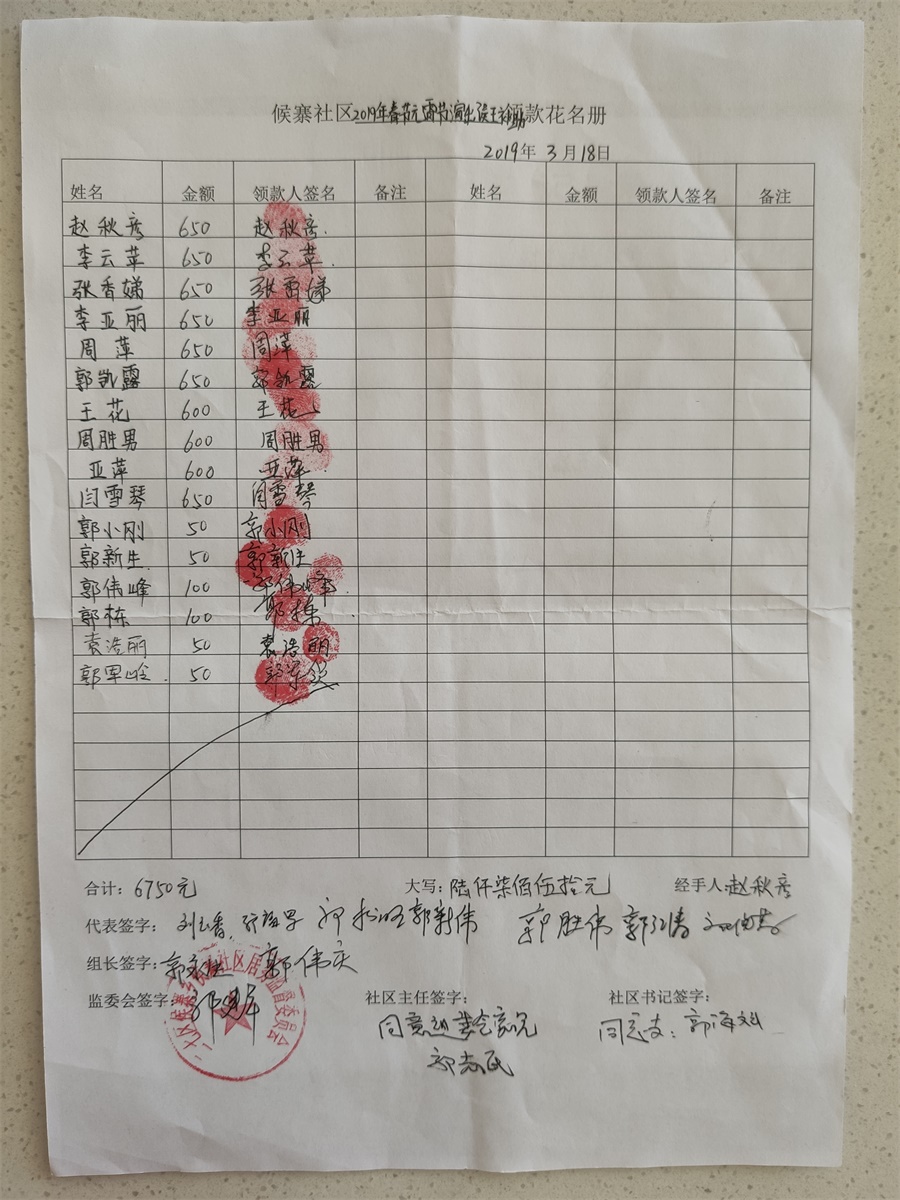 候寨社区2019年春节元宵节演出误工补助领款花名册
2019年 3月18日
姓名 金额 领款人签名 备注 姓名 金额 领款人签名 备注
赵秋彦 650 赵秋彦
李云苹 650 李云苹
张香娣 650 张香娣
李亚丽 650 李亚丽
周萍 650 周萍
郭凯露 650 郭凯露
王花 600 王花
周胜男 600 周胜男
亚萍 600 亚萍
闫雪琴 650 闫雪琴
郭小刚 50 郭小刚
郭新生 50 郭新生
郭伟峰 100 郭伟峰
郭栋 100 郭栋
袁浩丽 50 袁浩丽
郭军 50 郭军
合计: 6750元 大写: 陆仟柒佰伍拾元 经手人:赵秋彦
代表签字: 郭新伟 郭胜伟
组长签字: 郭伟庆
监委会签字: 社区主任签字: 社区书记签字:
同意 同意支: 郭海
郭志民